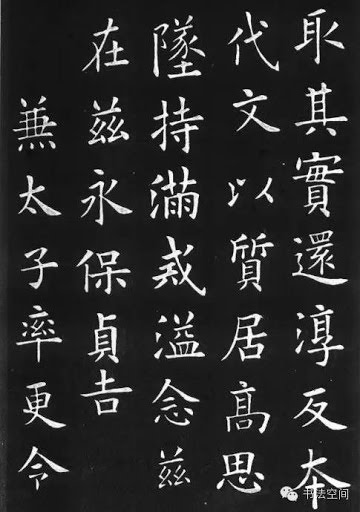 取其實還淳反本
代文以質居髙思
墜持滿戒溢念兹
在兹永保貞吉
兼太子率更令
书法空间